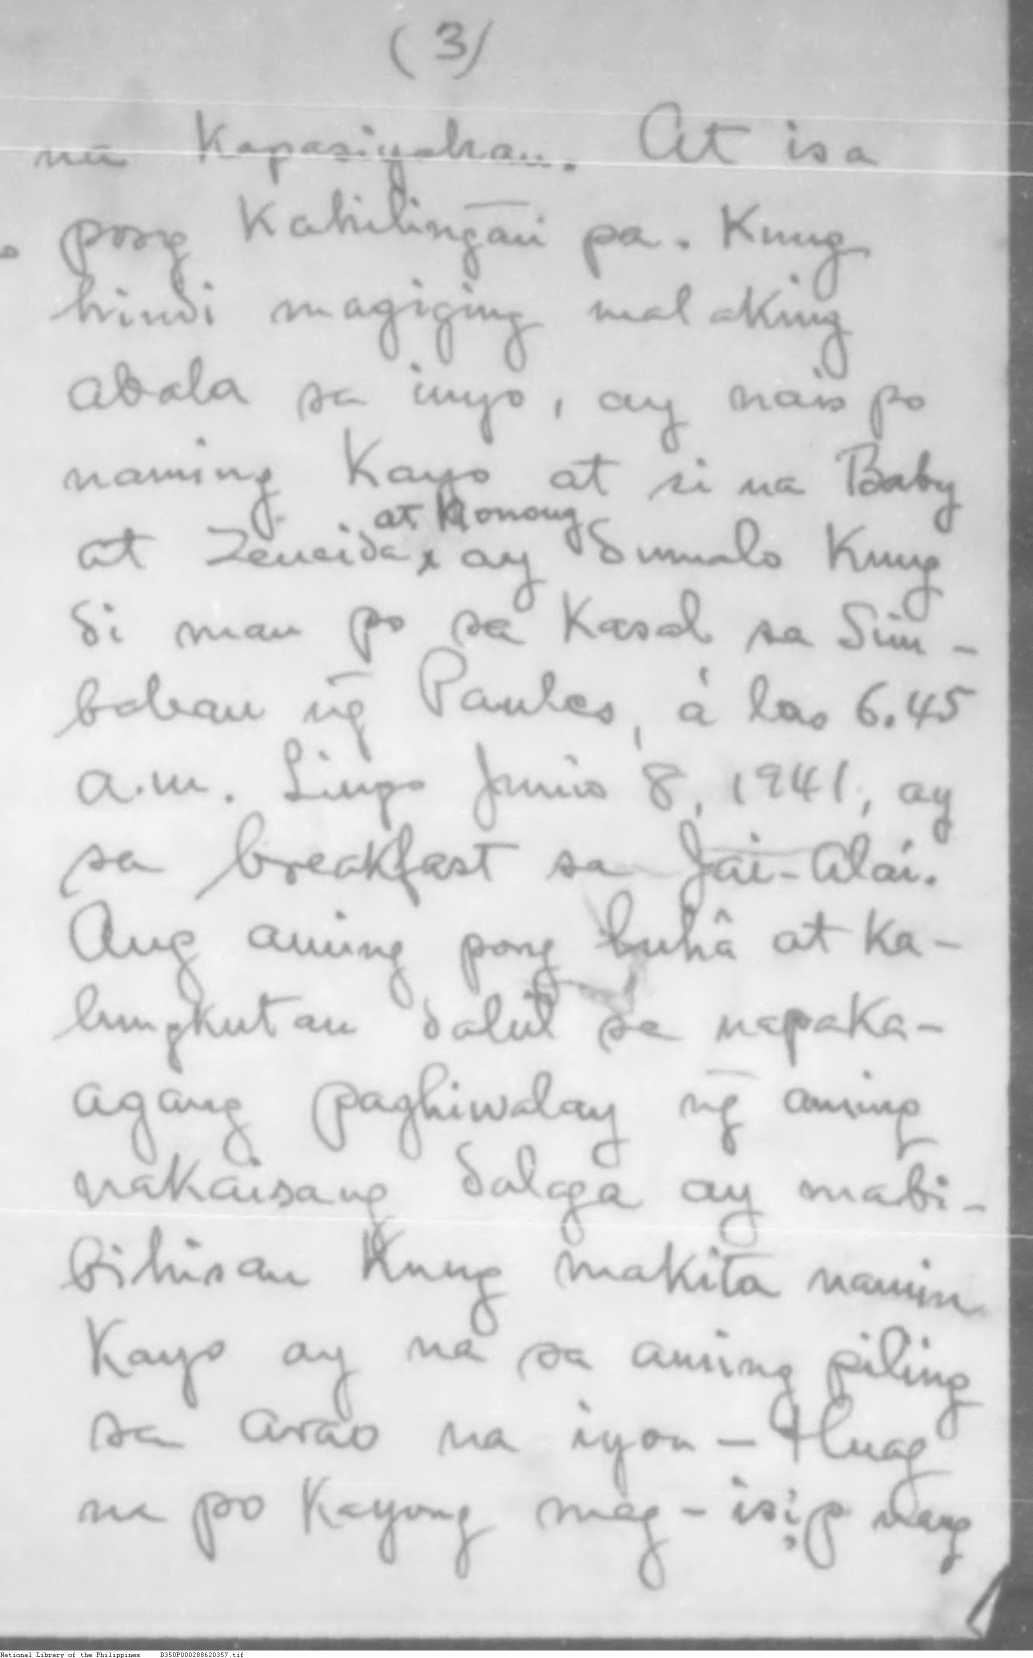 (3)
na Kapasiyahan. At isa
pong Kahilingan pa. Kung
hindi magiging malaking
abala sa inyo, ay nais po
naming Kayo at si na Baby
at Nonong
at Zeneida x ay dumalo Kung
di man po sa Kasal sa Sim-
bahan ng̃ Paules, á las 6.45
a.m. Lingo Junio 8, 1941, ay
sa breakfast sa Jai-Alai.
Ang aming pong luhâ at Ka-
lungkutan dahil sa napaka-
agang paghiwalay ng̃ aming
nakaisang dalaga ay mabi-
bihisan Kung makita namin
Kayo ay na sa aming piling
sa arao na iyon - Huag
na po Kayong mag-isip nang
National Library of the Philippines D350P000288620357.tif